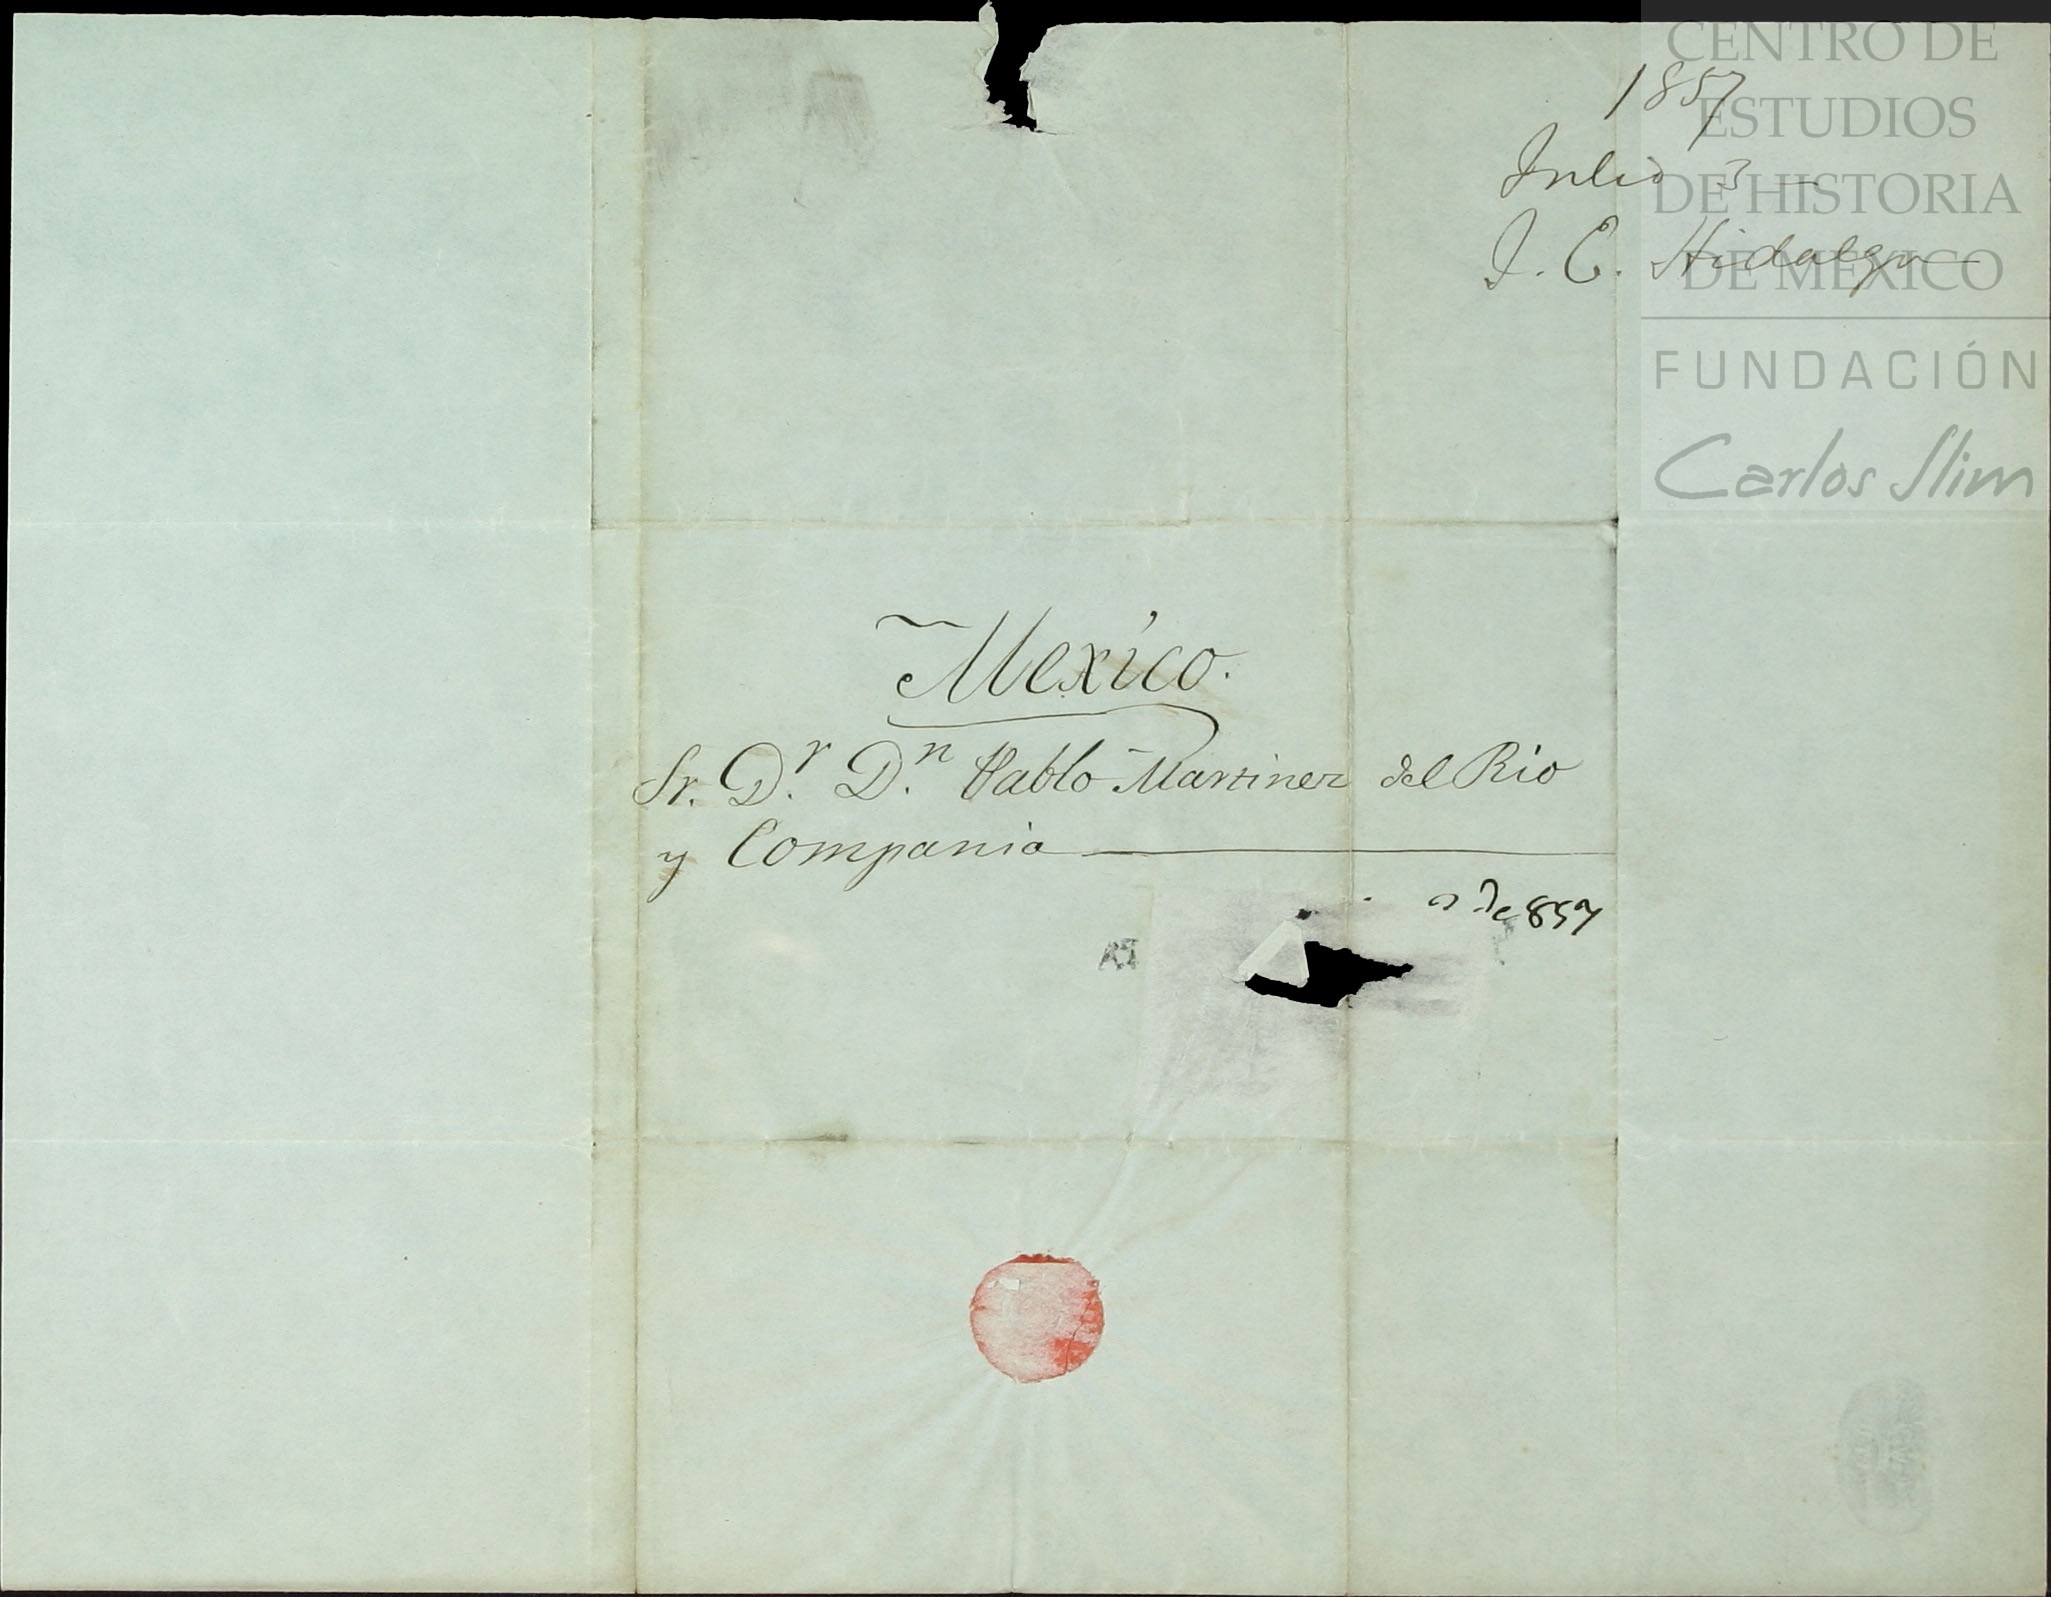 CENTRO DE
ESTUDIOS
DE HISTORIA
DE MEXICO
FUNDACIÓN
Carlos Slim
1857
Julio 3
J. C. Hidalgo
Mexico.
Sr. Dr. Dn. Pablo Martinez del Rio
y Compania
de 857